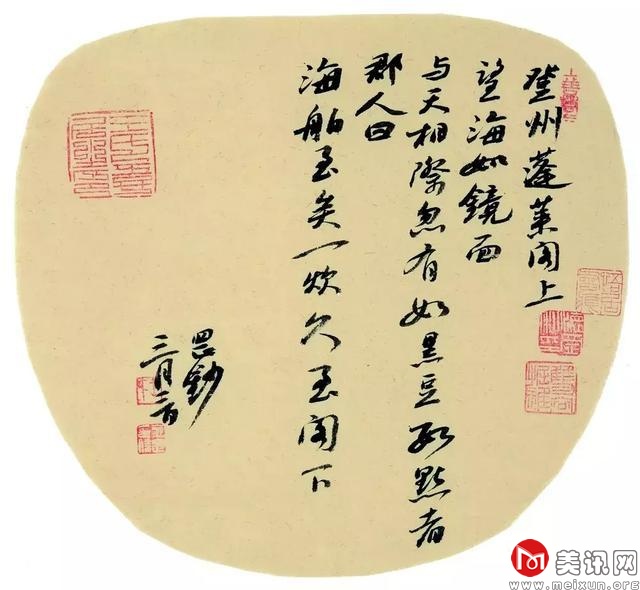 登州蓬莱阁上
望海如镜面
与天相际忽有如黑豆数點者
郡人曰
海舶至矣一炊久至阁下
三月三日
美讯网
www.meixun.org